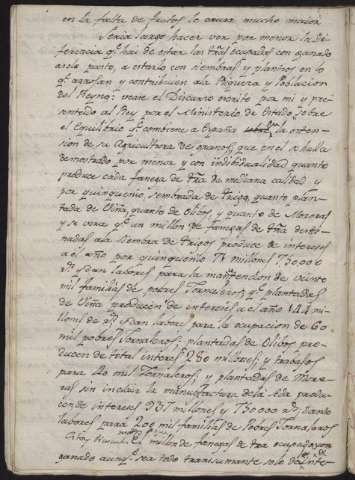 en la falta de frutos le causa mucho maior
Seria largo hacer ver por menor la di-
ferencia qe hai de estar las tras ocupadas con ganado
solo pasto, a estarlo con siembras y plantios en lo
qe arrastran y contribuien ala Riqueza y Poblacion
del Reyno; vease el Discurso escrito por mi y pre-
sentado al Rey por el Ministerio de Estado, sobre
el Equilibrio qe combiene a España la exten-
sion de su Agricultura de granos, que en el se halla
demostrado por menor y con individualidad quanto
produce cada fanega de tra de mediana calidad y
por quinquenio sembrada de trigo, quanto plan-
tada de Viña, quanto de Olibos, y quanto de Moreras
y se vera qe un millon de fanegas de tra desti-
nadas ala siembra de trigos produce de intereses
al año por quinquenio 71 millons 750000
rs y dan labores para la mantencion de veinte
mil familias de pobres Jornaleros; qe plantadas
de Viña producen de interés al año 144
millons de rs y dan labor para la ocupacion de 60
mil pobres Jornaleros; plantadas de Olibos pro-
ducen de total interes 280 millones, y trabajos
para 40 mil Jornaleros, y plantadas de More-
ras sin incluir la manufactura de la seda produ-
cen de interes 337 millones y 750000 rs, dando
labores para 200 mil familias de Pobres Jornaleros
millon de fanegas de tra ocupadas con
ganado aunqe sea todo transumante solo de inte-